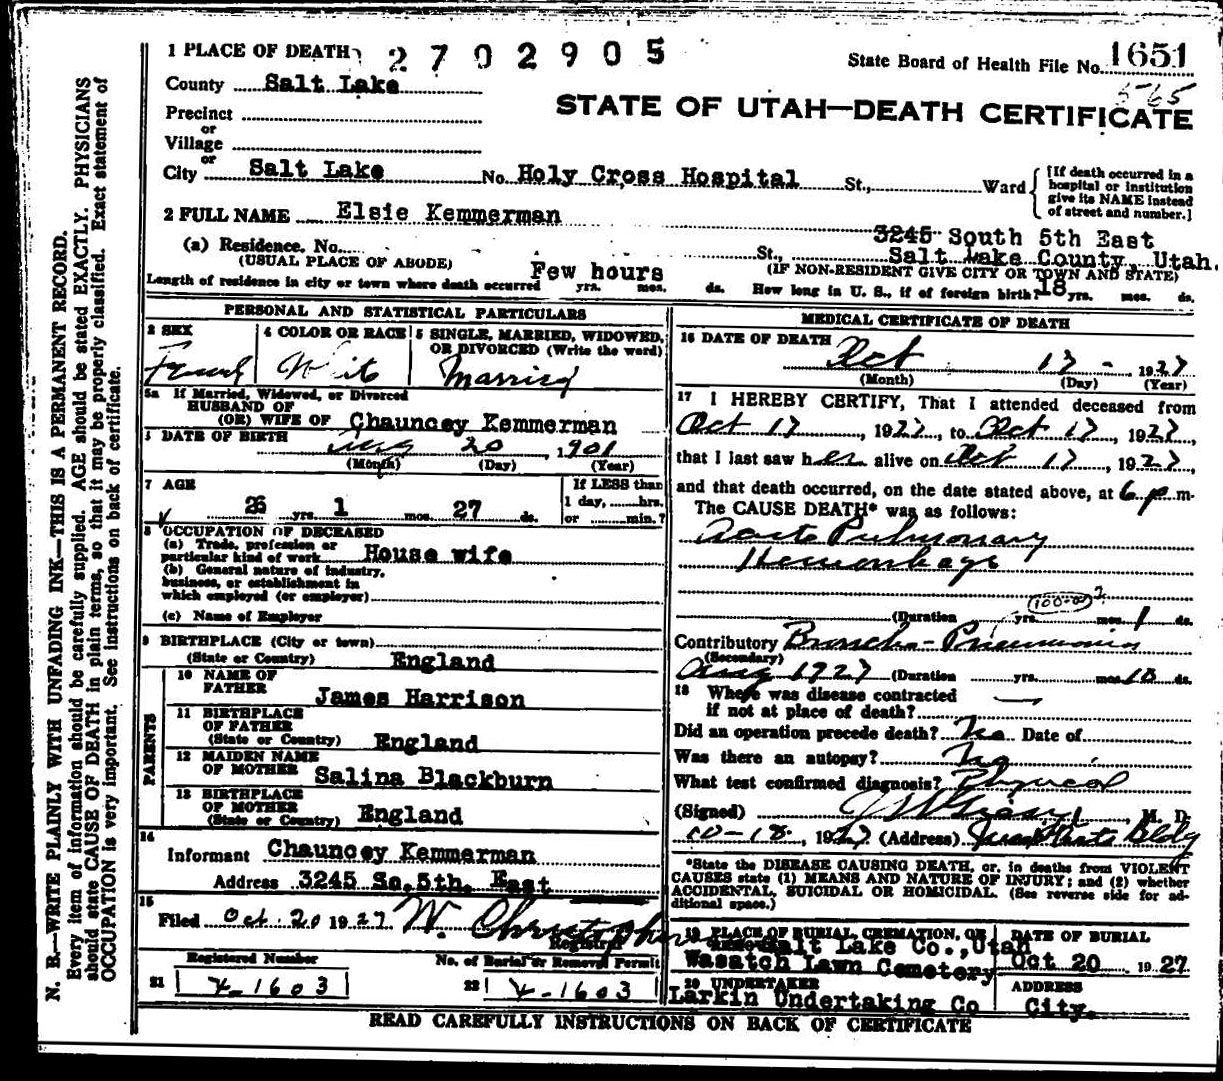 1 PLACE OF DEATH 2702905
State Board of Health File No. 1651
County Salt Lake
5-65
STATE OF UTAH—DEATH CERTIFICATE
Precinct
or
Village
or
City Salt Lake No. Holy Cross Hospital St., Ward
[If death occurred in a hospital or institution give its NAME instead of street and number.]
2 FULL NAME Elsie Kemmerman
3245 South 5th East
(a) Residence. No. St., Salt Lake County, Utah.
(USUAL PLACE OF ABODE) (IF NON-RESIDENT GIVE CITY OR TOWN AND STATE)
Length of residence in city or town where death occurred Few hours yrs. mos. ds. How long in U. S., if of foreign birth? 18 yrs. mos. ds.
PERSONAL AND STATISTICAL PARTICULARS
3 SEX
4 COLOR OR RACE
5 SINGLE, MARRIED, WIDOWED, OR DIVORCED (Write the word)
Female White Married
5a If Married, Widowed, or Divorced
HUSBAND OF
(OR) WIFE OF Chauncey Kemmerman
DATE OF BIRTH
Aug 20, 1901
(Month) (Day) (Year)
7 AGE
26 yrs. 1 mos. 27 ds.
If LESS than
1 day, hrs.
or min.?
8 OCCUPATION OF DECEASED
(a) Trade, profession or
particular kind of work House wife
(b) General nature of industry,
business, or establishment in
which employed (or employer)
(c) Name of Employer
9 BIRTHPLACE (City or town)
(State or Country) England
PARENTS
10 NAME OF
FATHER James Harrison
11 BIRTHPLACE
OF FATHER
(State or Country) England
12 MAIDEN NAME
OF MOTHER Salina Blackburn
13 BIRTHPLACE
OF MOTHER
(State or Country) England
14
Informant Chauncey Kemmerman
Address 3245 So. 5th. East
15
Filed Oct. 20 1927 W. Christopher
Registrar
Registered Number
21 X-1603
No. of Burial or Removal Permit
22 X-1603
MEDICAL CERTIFICATE OF DEATH
16 DATE OF DEATH
Oct 17 - 1927
(Month) (Day) (Year)
17 I HEREBY CERTIFY, That I attended deceased from
Oct 17, 1927, to Oct 17, 1927,
that I last saw her alive on Oct 17, 1927,
and that death occurred, on the date stated above, at 6 p.m.
The CAUSE DEATH* was as follows:
Acute Pulmonary
Hemorrhage
(Duration yrs. mos. 1 ds.
Contributory Broncho-Pneumonia
(Secondary)
Aug 1927 (Duration yrs. mos. 10 ds.
18 Where was disease contracted
if not at place of death? —
Did an operation precede death? No Date of
Was there an autopsy? No
What test confirmed diagnosis? Physical
(Signed) , M. D.
10-18, 1927 (Address) Bldg
*State the DISEASE CAUSING DEATH, or, in deaths from VIOLENT
CAUSES state (1) MEANS AND NATURE OF INJURY; and (2) whether
ACCIDENTAL, SUICIDAL OR HOMICIDAL. (See reverse side for ad-
ditional space.)
19 PLACE OF BURIAL, CREMATION, OR
Salt Lake Co., Utah
Wasatch Lawn Cemetery
DATE OF BURIAL
Oct 20 1927
20 UNDERTAKER
Larkin Undertaking Co
ADDRESS
City.
READ CAREFULLY INSTRUCTIONS ON BACK OF CERTIFICATE
N. B.—WRITE PLAINLY WITH UNFADING INK—THIS IS A PERMANENT RECORD.
Every item of information should be carefully supplied. AGE should be stated EXACTLY. PHYSICIANS
should state CAUSE OF DEATH in plain terms, so that it may be properly classified. Exact statement of
OCCUPATION is very important. See instructions on back of certificate.